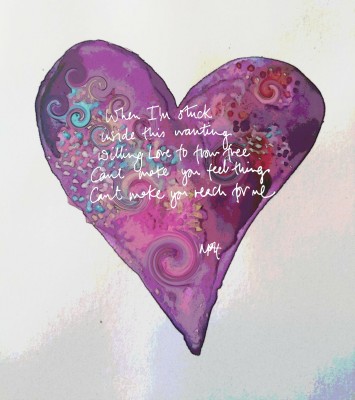 When I'm stuck
inside this wanting
willing Love to flow free
Can't make you feel things
Can't make you reach for me